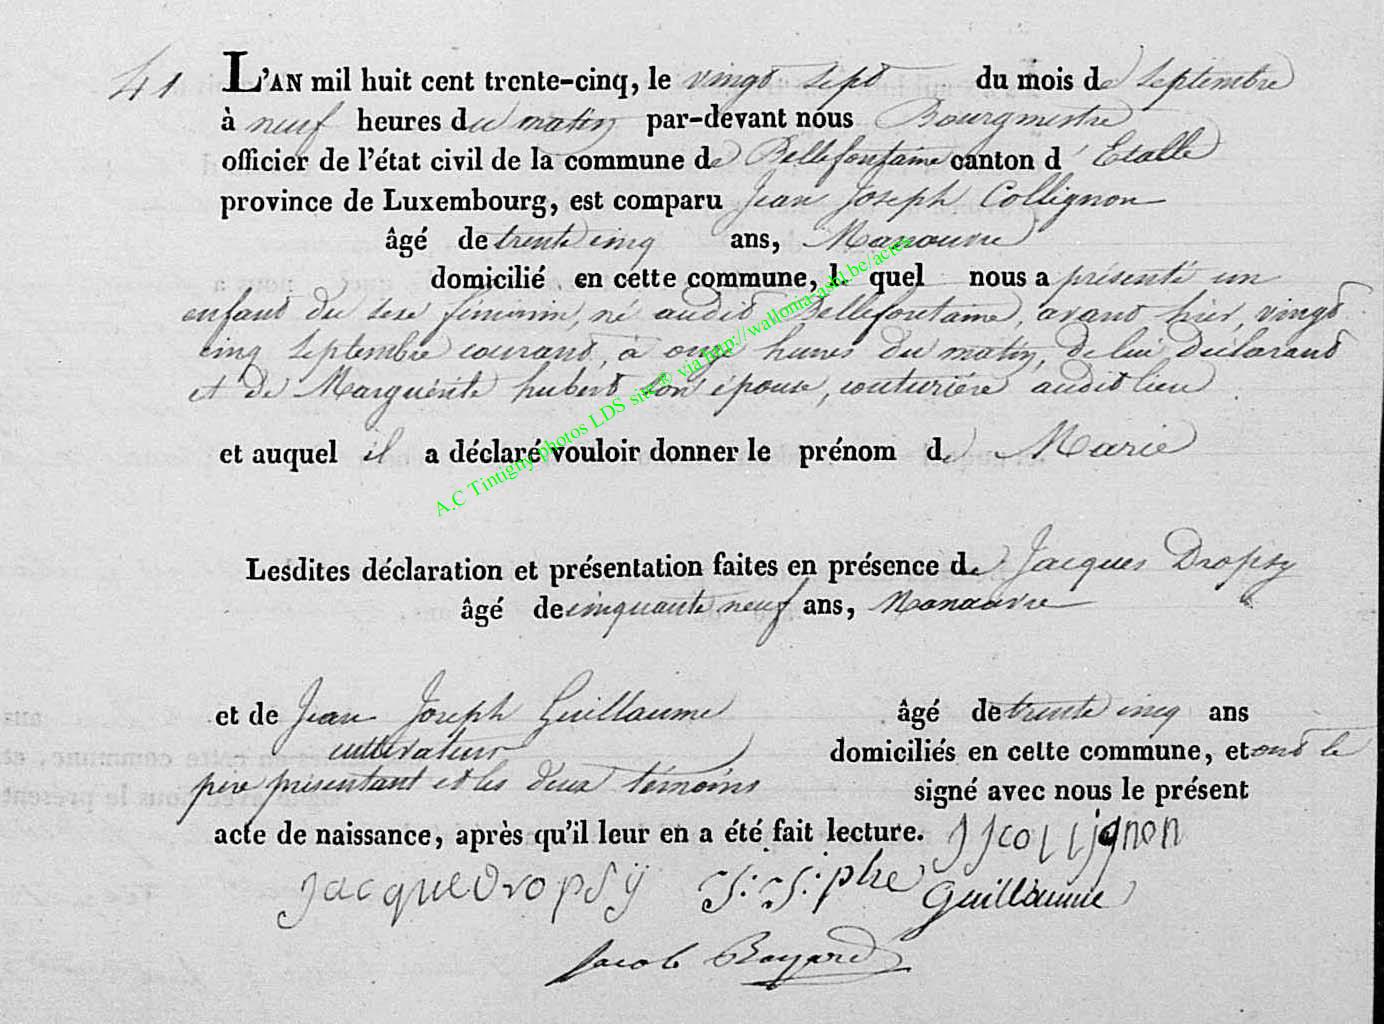 41 L'AN mil huit cent trente-cinq, le vingt sept du mois de Septembre
à neuf heures du matin par-devant nous Bourgmestre
officier de l'état civil de la commune de Bellefontaine canton d'Etalle
province de Luxembourg, est comparu Jean Joseph Collignon
âgé de trente cinq ans, Manouvre
domicilié en cette commune, le quel nous a présenté un
enfant du sexe féminin, né audit Bellefontaine, avant hier, vingt
cinq Septembre courant, à onze heures du matin, de lui déclarant
et de Marguérite hubert son épouse, couturiére audit lieu
et auquel il a déclaré vouloir donner le prénom de Marie
A.C Tintigny photos LDS site® via http://wallonia-asbl.be/actes
Lesdites déclaration et présentation faites en présence de Jacques Dropsy
âgé de cinquante neuf ans, Manouvre
et de Jean Joseph Guillaume âgé de trente cinq ans
cultivateur domiciliés en cette commune, et ont le
père présentant et les deux témoins signé avec nous le présent
acte de naissance, après qu'il leur en a été fait lecture. JJcollignon
JacqueDropsÿ
Guillaume
Jacob Bayard